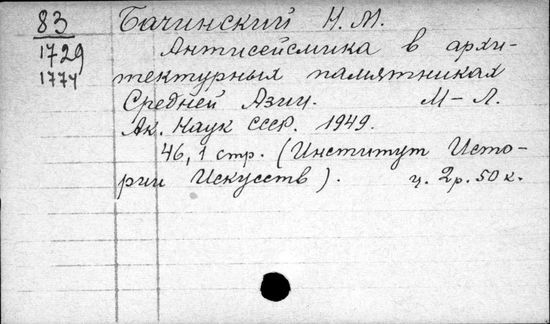 83 Бачинский Н. М.
1729 Антисейсмика в архи-
1774 тектурных памятниках
Средней Азии. М-Л.
Ак. Наук СССР. 1949.
46, 1 стр. (Институт Исто-
рии Искусств). ц. 2р. 50к.